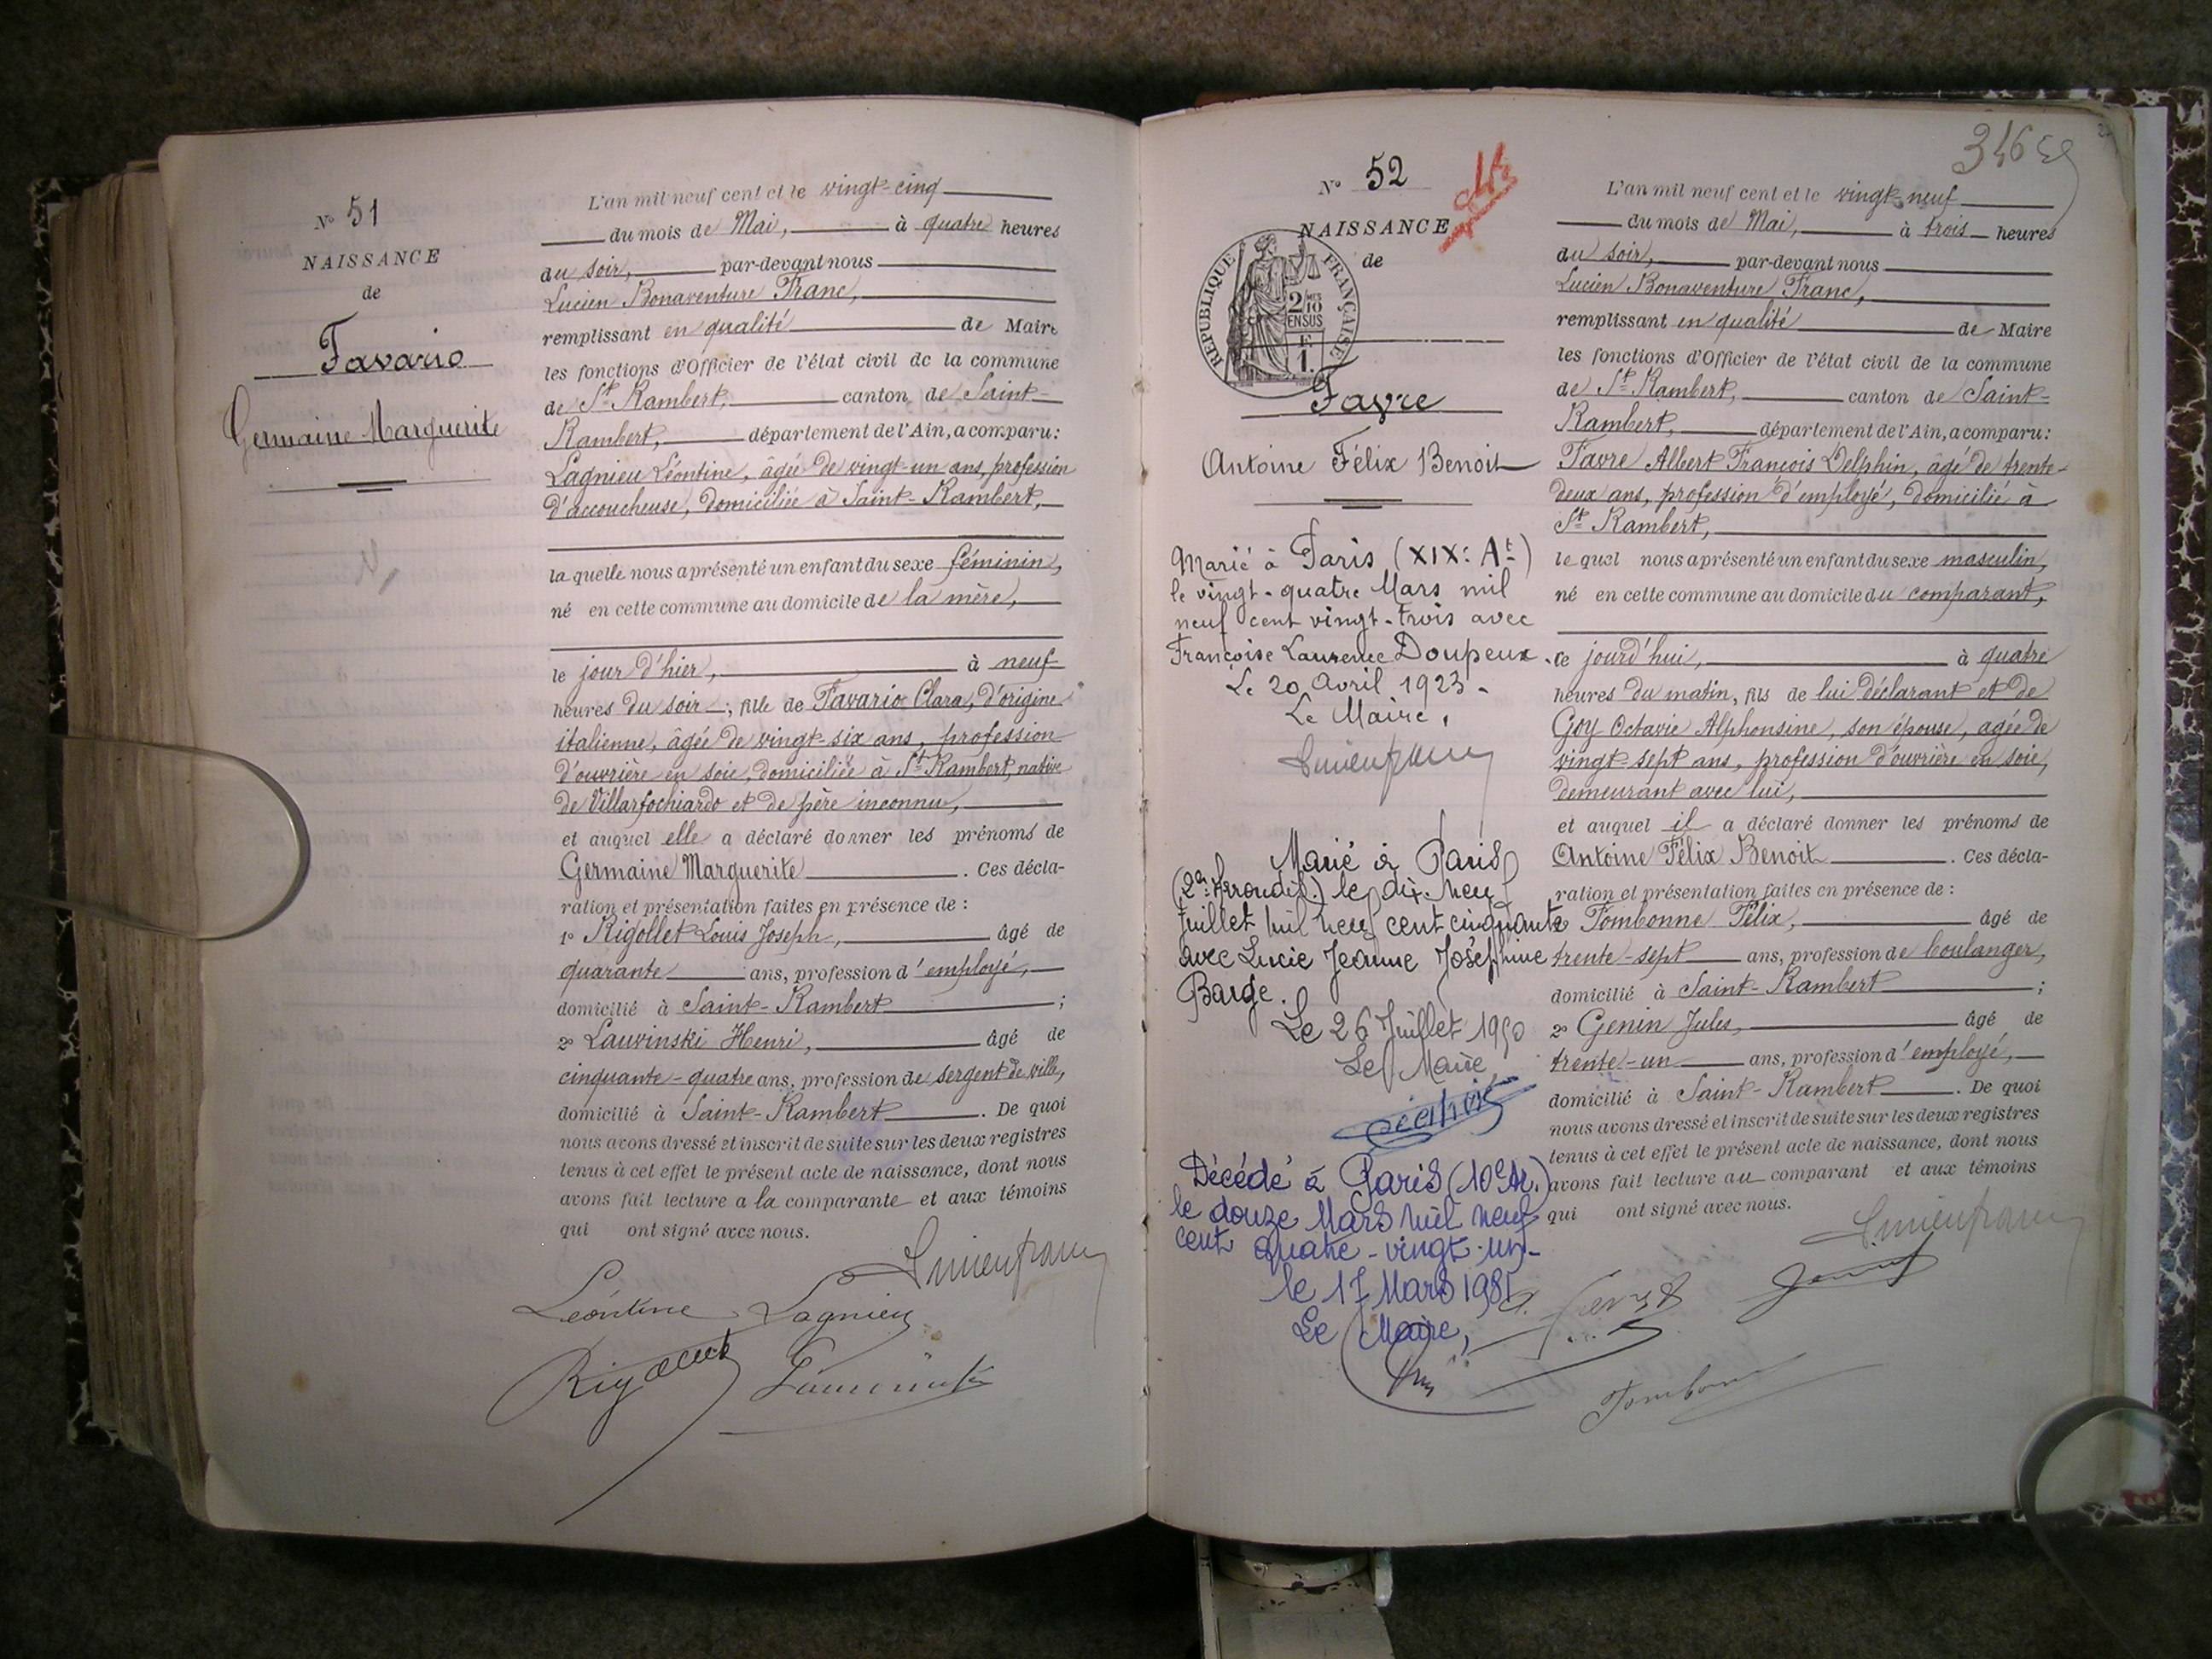 N° 51
NAISSANCE
de
Favario
Germaine Marguerite
L'an mil neuf cent et le vingt-cinq
du mois de Mai, à quatre heures
du soir, par-devant nous
Lucien Bonaventure Franc,
remplissant en qualité de Maire
les fonctions d'Officier de l'état civil de la commune
de St Rambert, canton de Saint-
Rambert, département de l'Ain, a comparu:
Lagnieu Léontine, âgée de vingt-un ans, profession
d'accoucheuse, domiciliée à Saint-Rambert,
la quelle nous a présenté un enfant du sexe féminin,
né en cette commune au domicile de la mère,
le jour d'hier, à neuf
heures du soir, fille de Favario Clara, d'origine
italienne, âgée de vingt-six ans, profession
d'ouvrière en soie, domiciliée à St Rambert, native
de Villarfochiardo et de père inconnu,
et auquel elle a déclaré donner les prénoms de
Germaine Marguerite. Ces décla-
ration et présentation faites en présence de :
1° Rigollet Louis Joseph, âgé de
quarante ans, profession d'employé,
domicilié à Saint-Rambert ;
2° Lauvinski Henri, âgé de
cinquante-quatre ans, profession de sergent de ville,
domicilié à Saint-Rambert. De quoi
nous avons dressé et inscrit de suite sur les deux registres
tenus à cet effet le présent acte de naissance, dont nous
avons fait lecture a la comparante et aux témoins
qui ont signé avec nous.
Léontine Lagnieu
N° 52
NAISSANCE
de
REPUBLIQUE FRANÇAISE
2/10 MES
EN SUS
F.
1.
Favre
Antoine Félix Benoit
Marié à Paris (XIX: At)
le vingt-quatre Mars mil
neuf cent vingt-trois avec
Françoise Laurence Doupeux.
Le 20 Avril 1923.
Le Maire,
Marié à Paris
(2e Arrondis.) le dix-neuf
Juillet mil neuf cent cinquante
avec Lucie Jeanne Joséphine
Barge.
Le 26 Juillet 1950
Le Maire,
Décédé à Paris (10e Ar.)
le douze Mars mil neuf
cent quatre-vingt-un-
le 17 Mars 1981
Le Maire,
L'an mil neuf cent et le vingt-neuf
du mois de Mai, à trois heures
du soir, par-devant nous
Lucien Bonaventure Franc,
remplissant en qualité de Maire
les fonctions d'Officier de l'état civil de la commune
de St Rambert, canton de Saint-
Rambert, département de l'Ain, a comparu:
Favre Albert François Delphin, âgé de trente-
deux ans, profession d'employé, domicilié à
St Rambert,
le quel nous a présenté un enfant du sexe masculin,
né en cette commune au domicile du comparant,
ce jourd'hui, à quatre
heures du matin, fils de lui déclarant et de
Goy Octavie Alphonsine, son épouse, agée de
vingt-sept ans, profession d'ouvrière en soie,
demeurant avec lui,
et auquel il a déclaré donner les prénoms de
Antoine Félix Benoit. Ces décla-
ration et présentation faites en présence de :
Tombonne Félix, âgé de
trente-sept ans, profession de boulanger,
domicilié à Saint-Rambert ;
2° Genin Jules, âgé de
trente-un ans, profession d'employé,
domicilié à Saint-Rambert. De quoi
nous avons dressé et inscrit de suite sur les deux registres
tenus à cet effet le présent acte de naissance, dont nous
avons fait lecture au comparant et aux témoins
qui ont signé avec nous.